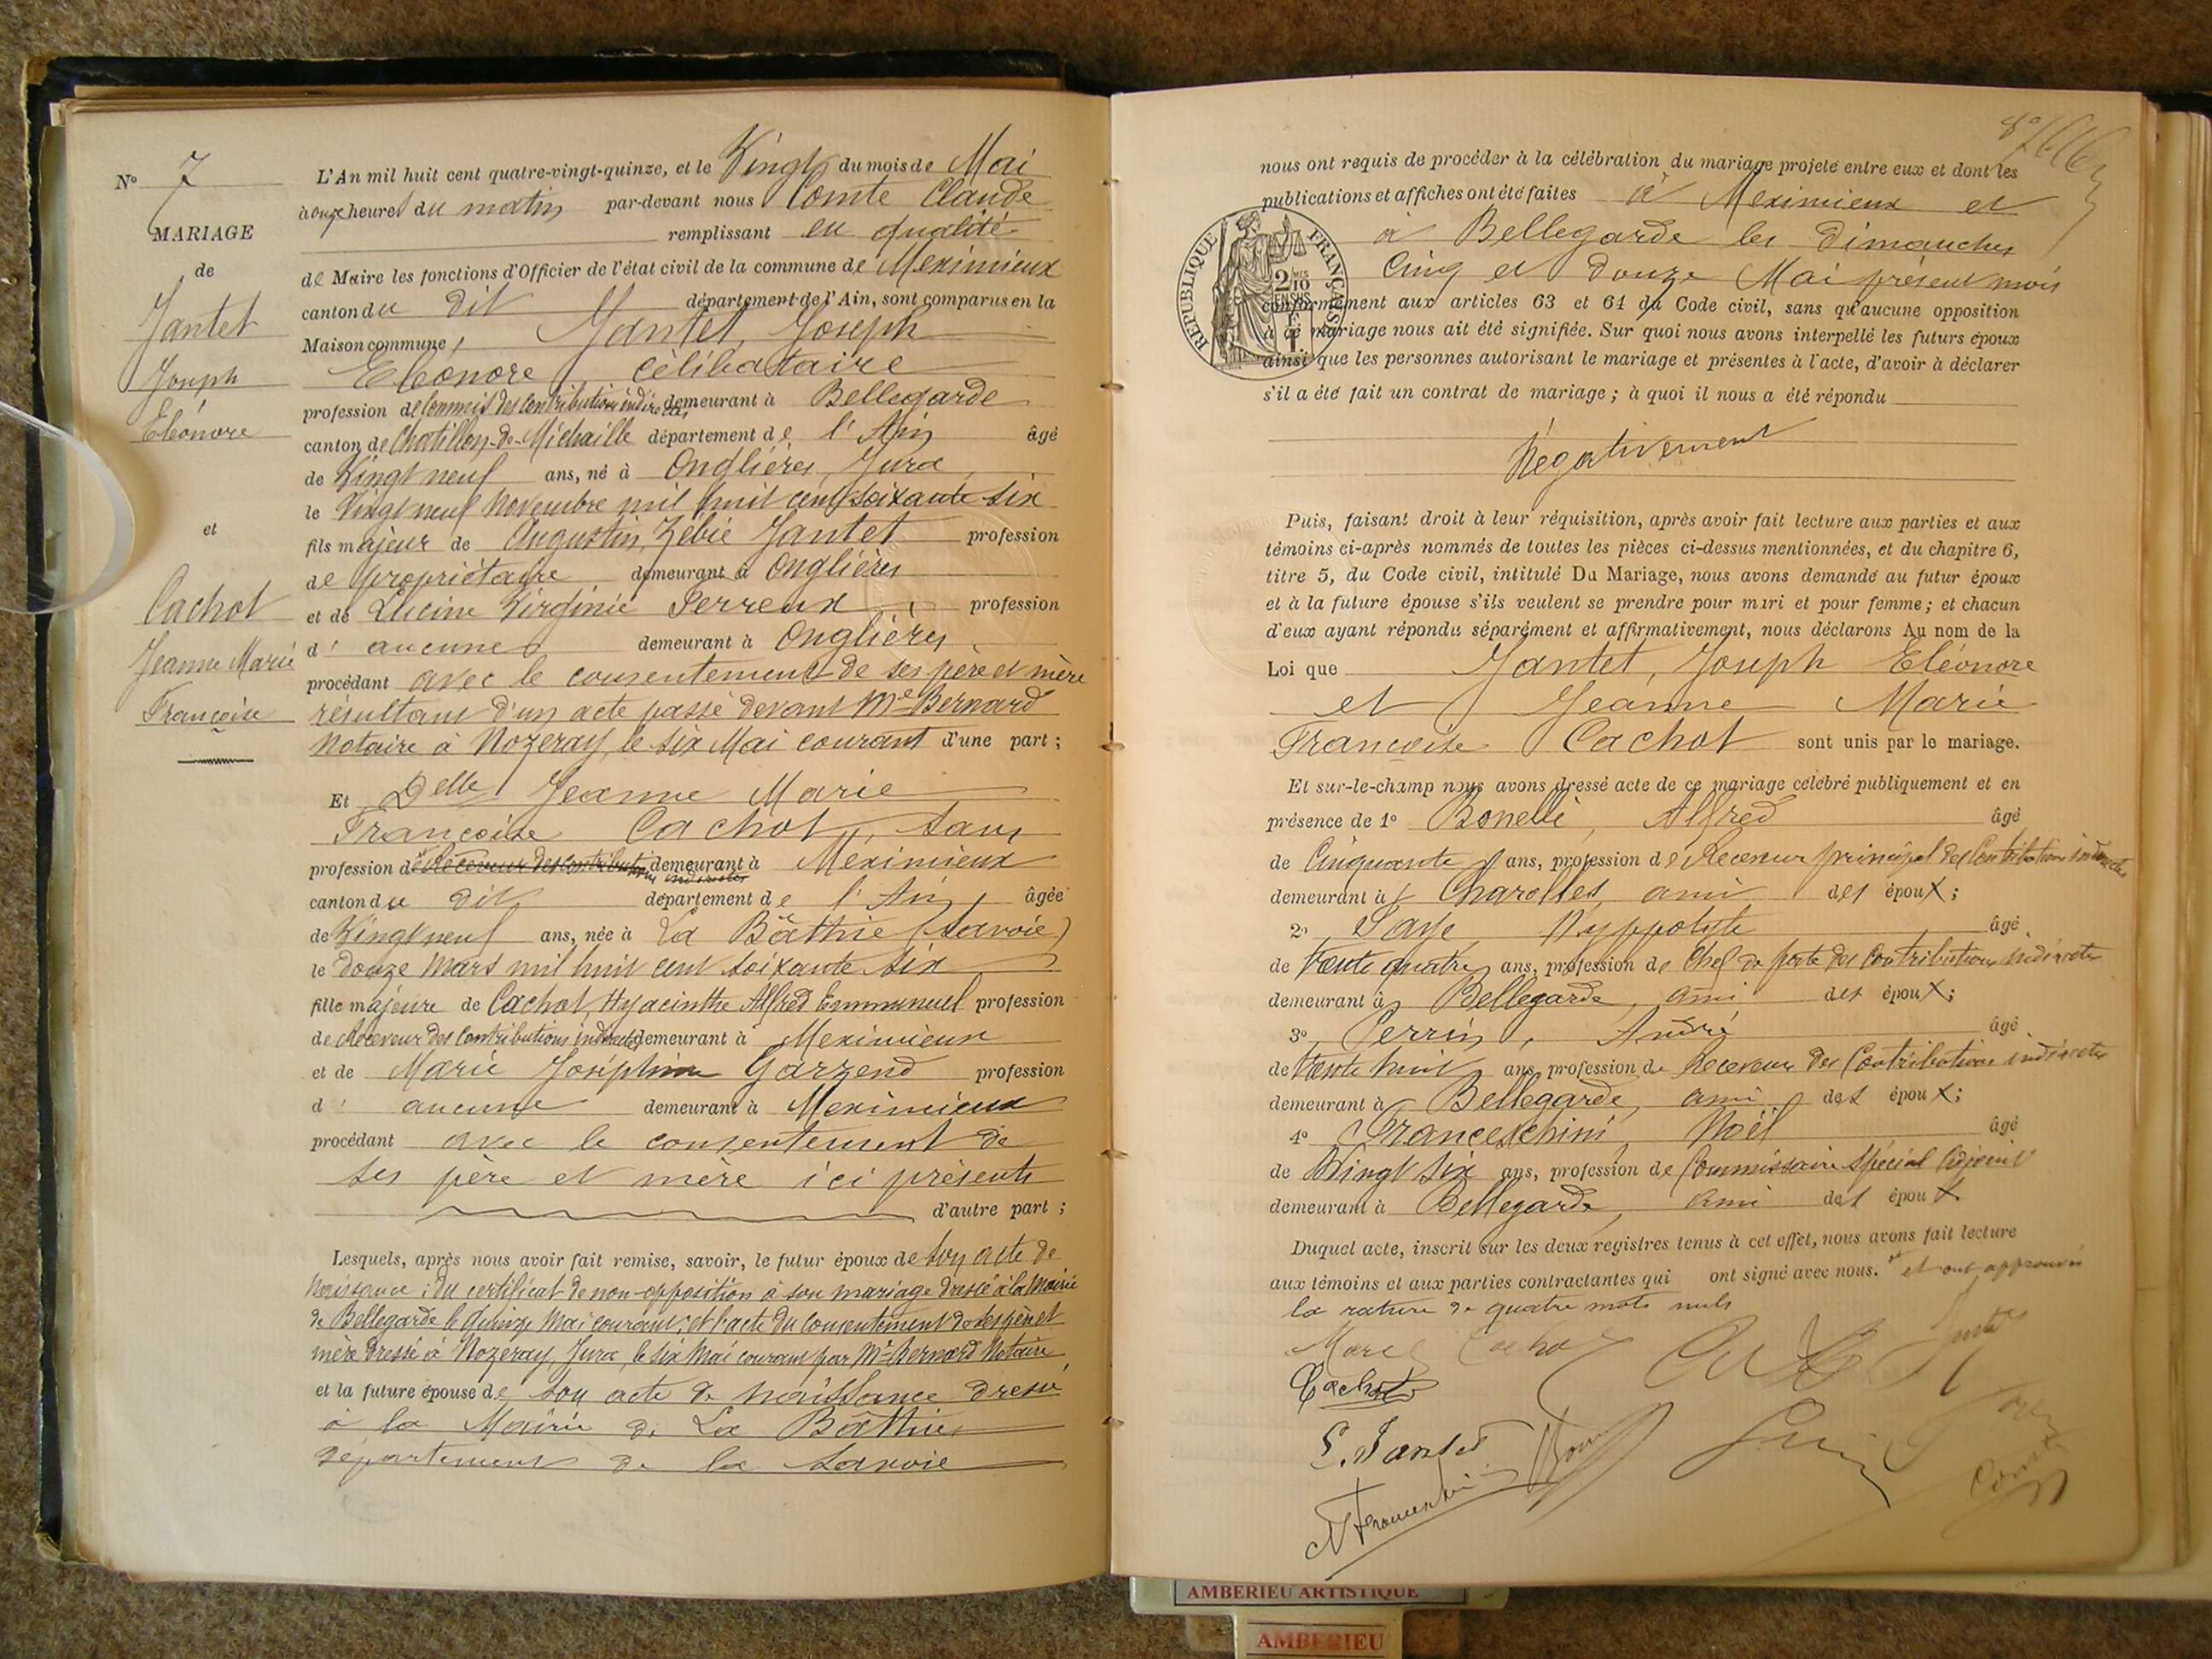 N° 7
MARIAGE
de
Jantet
Joseph
Eléonore
et
Cachot
Jeanne Marie
Françoise
L'An mil huit cent quatre-vingt-quinze, et le Vingt du mois de Mai
à onze heures du matin par-devant nous Comte Claude
remplissant en qualité
de Maire les fonctions d'Officier de l'état civil de la commune de Meximieux
canton du dit département de l'Ain, sont comparus en la
Maison commune, Jantet, Joseph
Eléonore célibataire
profession de Commis des Contributions indirectes demeurant à Bellegarde
canton de Chatillon-de-Michaille département de l'Ain âgé
de Vingt neuf ans, né à Onglières, Jura
le Vingt neuf Novembre mil huit cent soixante six
fils majeur de Augustin, Zébie Jantet profession
de propriétaire demeurant à Onglières
et de Lucine Virginie Perreux, profession
d' aucune demeurant à Onglières
procédant avec le consentement de ses père et mère
résultant d'un acte passé devant Me Bernard
Notaire à Nozeroy, le six Mai courant d'une part ;
Et Delle Jeanne Marie
Françoise Cachot, sans
profession de Receveur des Contributions indirectes demeurant à Meximieux
canton du dit département de l'Ain, âgée
de Vingt neuf ans, née à La Bâthie (Savoie)
le douze Mars mil huit cent soixante six
fille majeure de Cachot, Hyacinthe Alfred Emmanuel profession
de Receveur des Contributions indirectes demeurant à Meximieux
et de Marie Joséphine Garzend profession
d' aucune demeurant à Meximieux
procédant avec le consentement de
ses père et mère ici présents
d'autre part ;
Lesquels, après nous avoir fait remise, savoir, le futur époux de son acte de
Naissance ; du certificat de non-opposition à son mariage dressé à la Mairie
de Bellegarde le quinze Mai courant ; et l'acte du consentement de ses père et
mère dressé à Nozeroy, Jura, le six Mai courant par Me Bernard Notaire,
et la future épouse de son acte de naissance dressé
à la Mairie de La Bâthie
département de la Savoie
nous ont requis de procéder à la célébration du mariage projeté entre eux et dont les
publications et affiches ont été faites à Meximieux et
à Bellegarde les dimanches
Cinq et douze Mai présent mois
conformément aux articles 63 et 64 du Code civil, sans qu'aucune opposition
à ce mariage nous ait été signifiée. Sur quoi nous avons interpellé les futurs époux
ainsi que les personnes autorisant le mariage et présentes à l'acte, d'avoir à déclarer
s'il a été fait un contrat de mariage ; à quoi il nous a été répondu
Négativement
REPUBLIQUE FRANÇAISE
2
10
Puis, faisant droit à leur réquisition, après avoir fait lecture aux parties et aux
témoins ci-après nommés de toutes les pièces ci-dessus mentionnées, et du chapitre 6,
titre 5, du Code civil, intitulé Du Mariage, nous avons demandé au futur époux
et à la future épouse s'ils veulent se prendre pour mari et pour femme ; et chacun
d'eux ayant répondu séparément et affirmativement, nous déclarons Au nom de la
Loi que Jantet, Joseph Eléonore
et Jeanne Marie
Françoise Cachot sont unis par le mariage.
Et sur-le-champ nous avons dressé acte de ce mariage célébré publiquement et en
présence de 1° Bonelli, Alfred âgé
de Cinquante ans, profession de Receveur principal des Contributions indirectes
demeurant à Charolles, ami des époux ;
2° Hyppolyte âgé
de trente quatre ans, profession de Chef de poste des Contributions indirectes
demeurant à Bellegarde, ami des époux ;
3° Perrin, André âgé
de trente huit ans, profession de Receveur des Contributions indirectes
demeurant à Bellegarde, ami des époux ;
4° Franceschini, Noël âgé
de Vingt six ans, profession de Commissaire Spécial Adjoint
demeurant à Bellegarde, ami des époux
Duquel acte, inscrit sur les deux registres tenus à cet effet, nous avons fait lecture
aux témoins et aux parties contractantes qui ont signé avec nous. et ont approuvé
la rature de quatre mots nuls
Cachot
Cachot
Jantet
AMBERIEU ARTISTIQUE
AMBERIEU